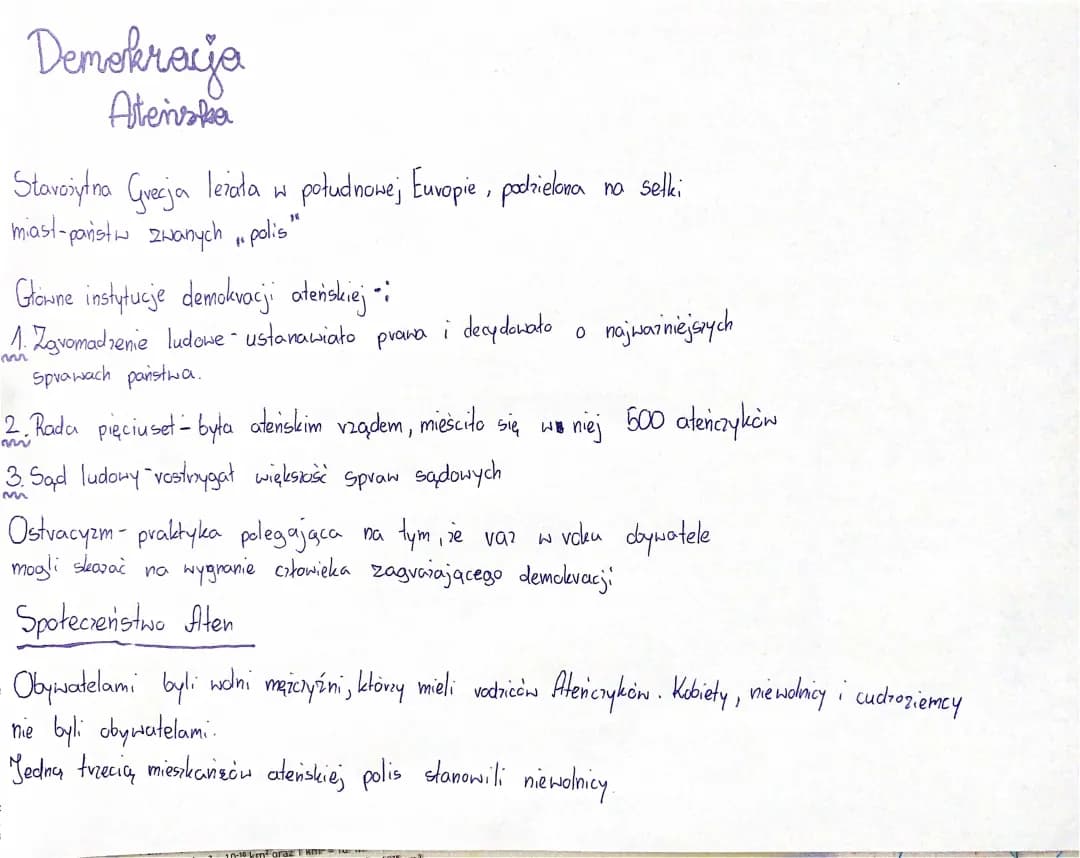 Demokracja
Ateńska
Starożytna Grecja leżała w połudnowej Europie, podzielona na setki
miast-państw zwanych „polis"
Główne instytucje demokracji ateńskiej -:
1. Zgromadzenie ludowe - ustanawiało prawa i decydowało o najważniejszych
sprawach państwa.
2. Rada pięciuset - była ateńskim rządem, mieściło się w niej 500 ateńczyków
3. Sąd ludowy - rostrzygał większość spraw sądowych
Ostracyzm - praktyka polegająca na tym, że raz w roku obywatele
mogli skazać na wygnanie człowieka zagrażającego demokracji
Społeczeństwo Aten
Obywatelami byli wolni mężczyźni, którzy mieli rodziców Ateńczyków. Kobiety, niewolnicy i cudzoziemcy
nie byli obywatelami.
Jedną trzecią mieszkańców ateńskiej polis stanowili niewolnicy.